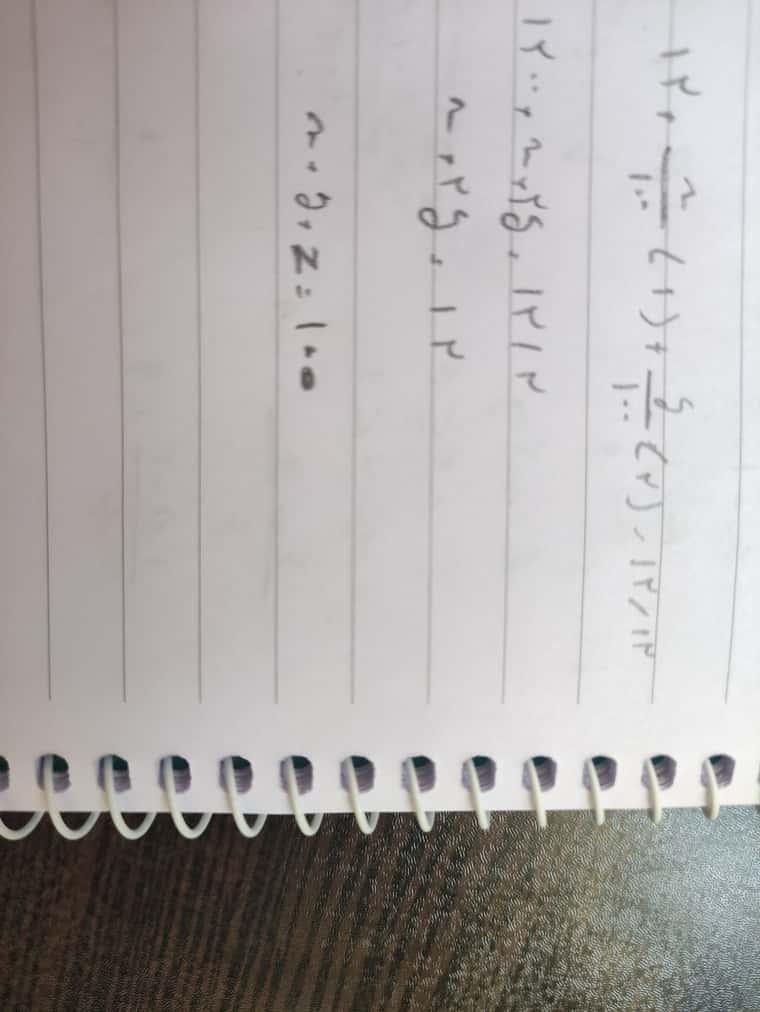 ۱۲ + x/۱۰۰ (۱) + y/۱۰۰ (۲) = ۱۲/۱۲
۱۲۰۰ + x + ۲y = ۱۲۱۲
x + ۲y = ۱۲
x + y + z = ۱۰۰